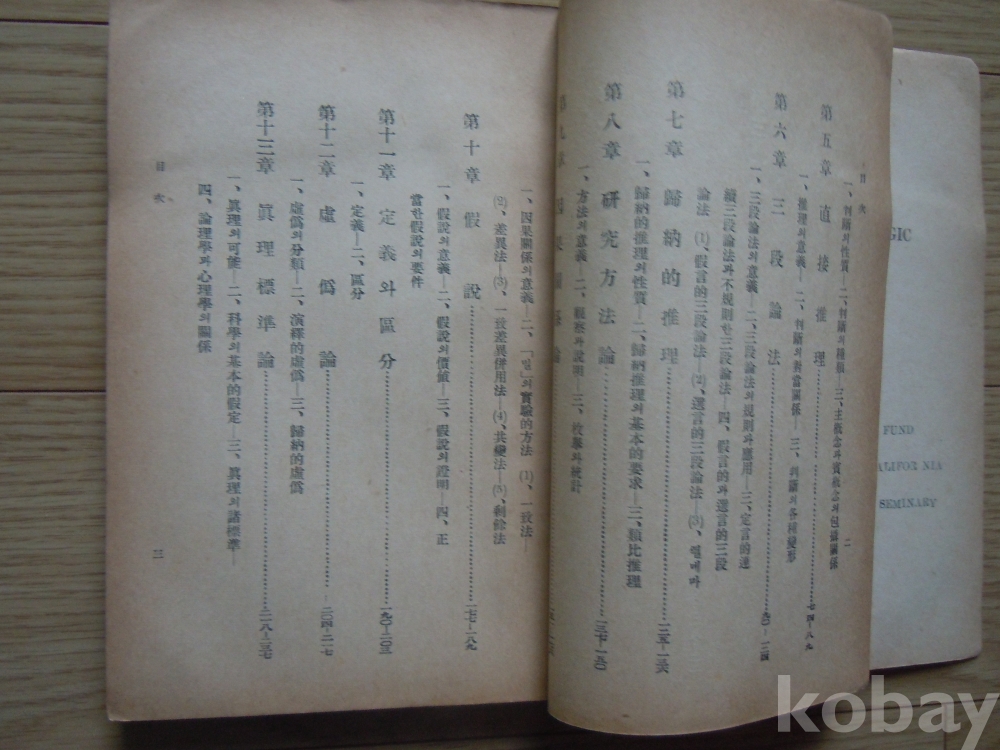 目次
一、判斷의性質—二、判斷의種類—三、主概念과賓概念의包攝關係
第五章 直接推理……七四-八九
一、推理의意義—二、判斷의對當關係—三、判斷의各種變形
第六章 三段論法……九〇-一二四
一、三段論法의意義—二、三段論法의規則과應用—三、定言的連
續三段論法과不規則한三段論法—四、假言的과選言的三段
論法 (1)、假言的三段論法—(2)、選言的三段論法—(3)、띌레마
第七章 歸納的推理……一二五-一三六
一、歸納的推理의性質—二、歸納推理의基本的要求—三、類比推理
第八章 研究方法論……一三七-一五〇
一、方法의意義—二、觀察과說明—三、枚擧와統計
二
一、因果關係의意義—二、「밀」의實驗的方法 (1)、一致法—
(2)、差異法—(3)、一致差異併用法—(4)、共變法—(5)、剩餘法
第十章 假說……一七七-一八九
一、假說의意義—二、假說의價値—三、假說의證明—四、正
當한假說의要件
第十一章 定義와區分……一九〇-二〇三
一、定義—二、區分
第十二章 虛僞論……二〇四-二一七
一、虛僞의分類—二、演繹的虛僞—三、歸納的虛僞
第十三章 眞理標準論……二一八-二三七
一、眞理의可能—二、科學의基本的假定—三、眞理의諸標準—
四、論理學과心理學의關係
目次
三
GIC
FUND
ALIFORNIA
SEMINARY
kobay